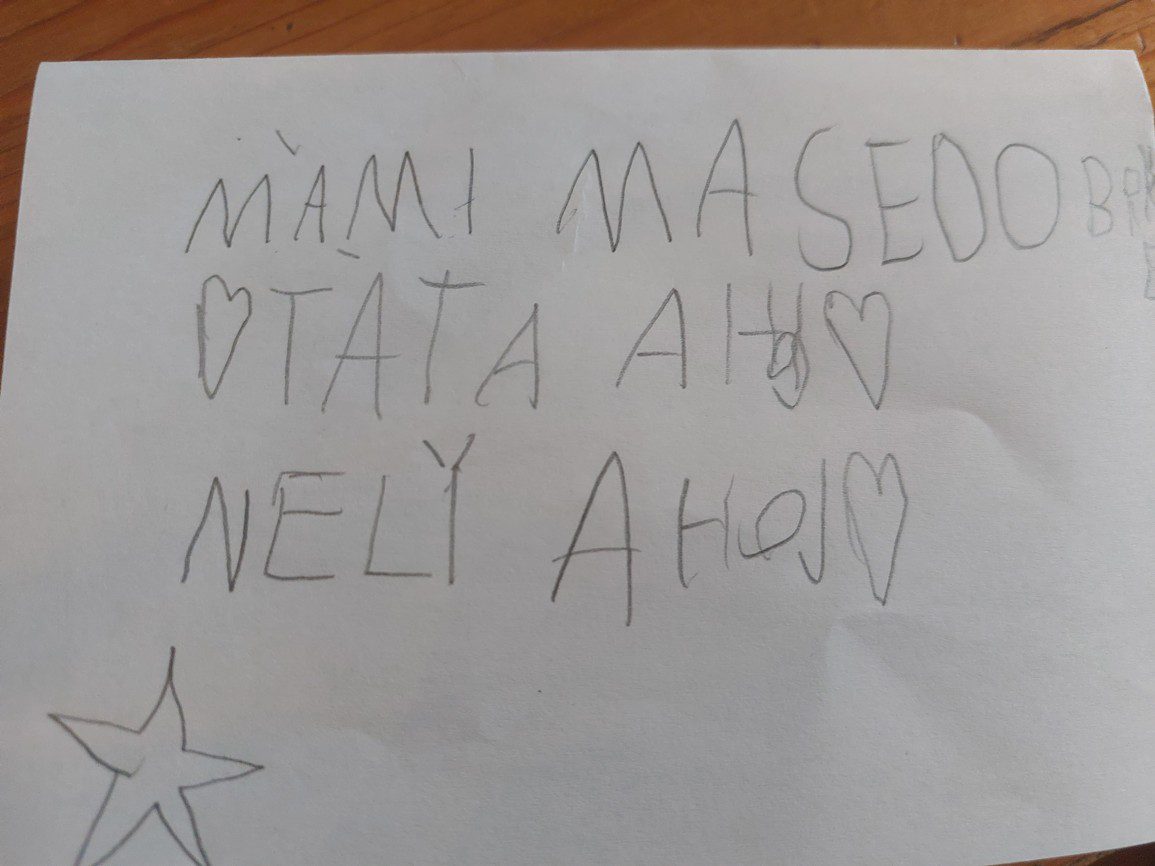 MÀMI MASEDOBR
TÀTA AHOJ
NELY AHOJ